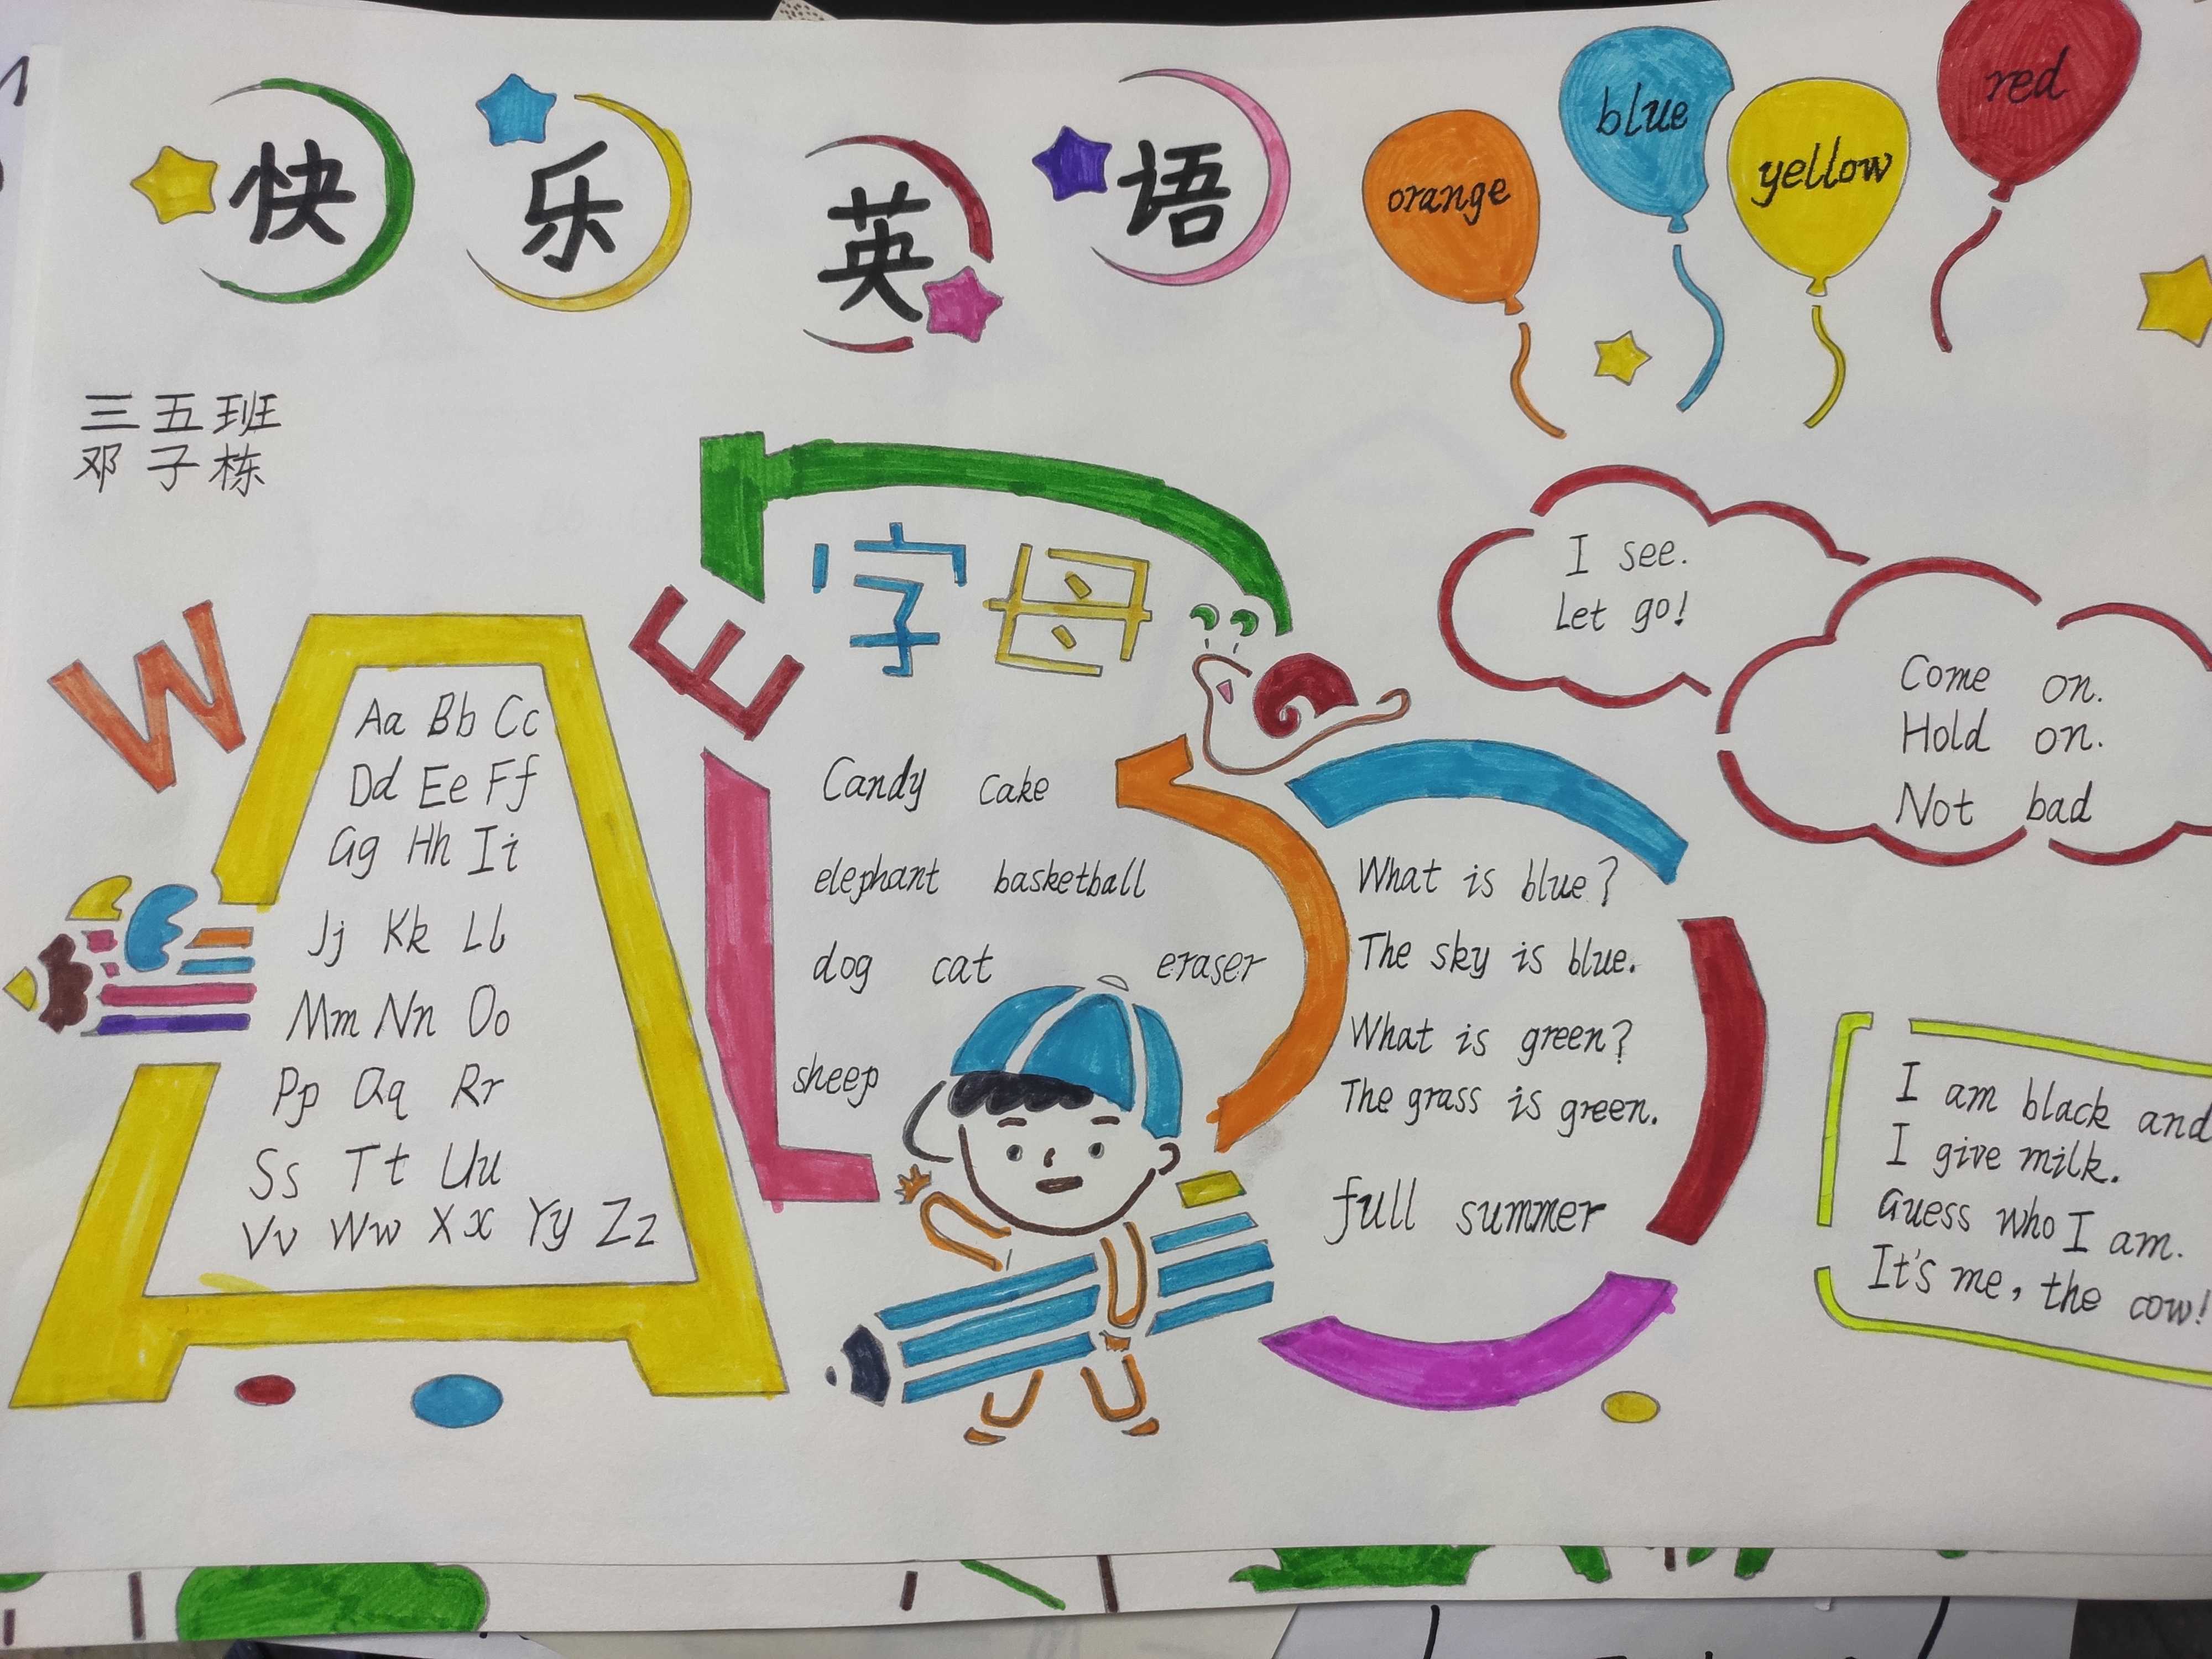 快乐英语
orange
blue
yellow
red
三五班
邓子栋
W
Aa Bb Cc
Dd Ee Ff
Gg Hh Ii
Jj Kk Ll
Mm Nn Oo
Pp Qq Rr
Ss Tt Uu
Vv Ww Xx Yy Zz
E
字母
Candy cake
elephant basketball
dog cat eraser
sheep
I see.
Let go!
Come on.
Hold on.
Not bad
What is blue?
The sky is blue.
What is green?
The grass is green.
full summer
I am black and
I give milk.
Guess who I am.
It's me, the cow!